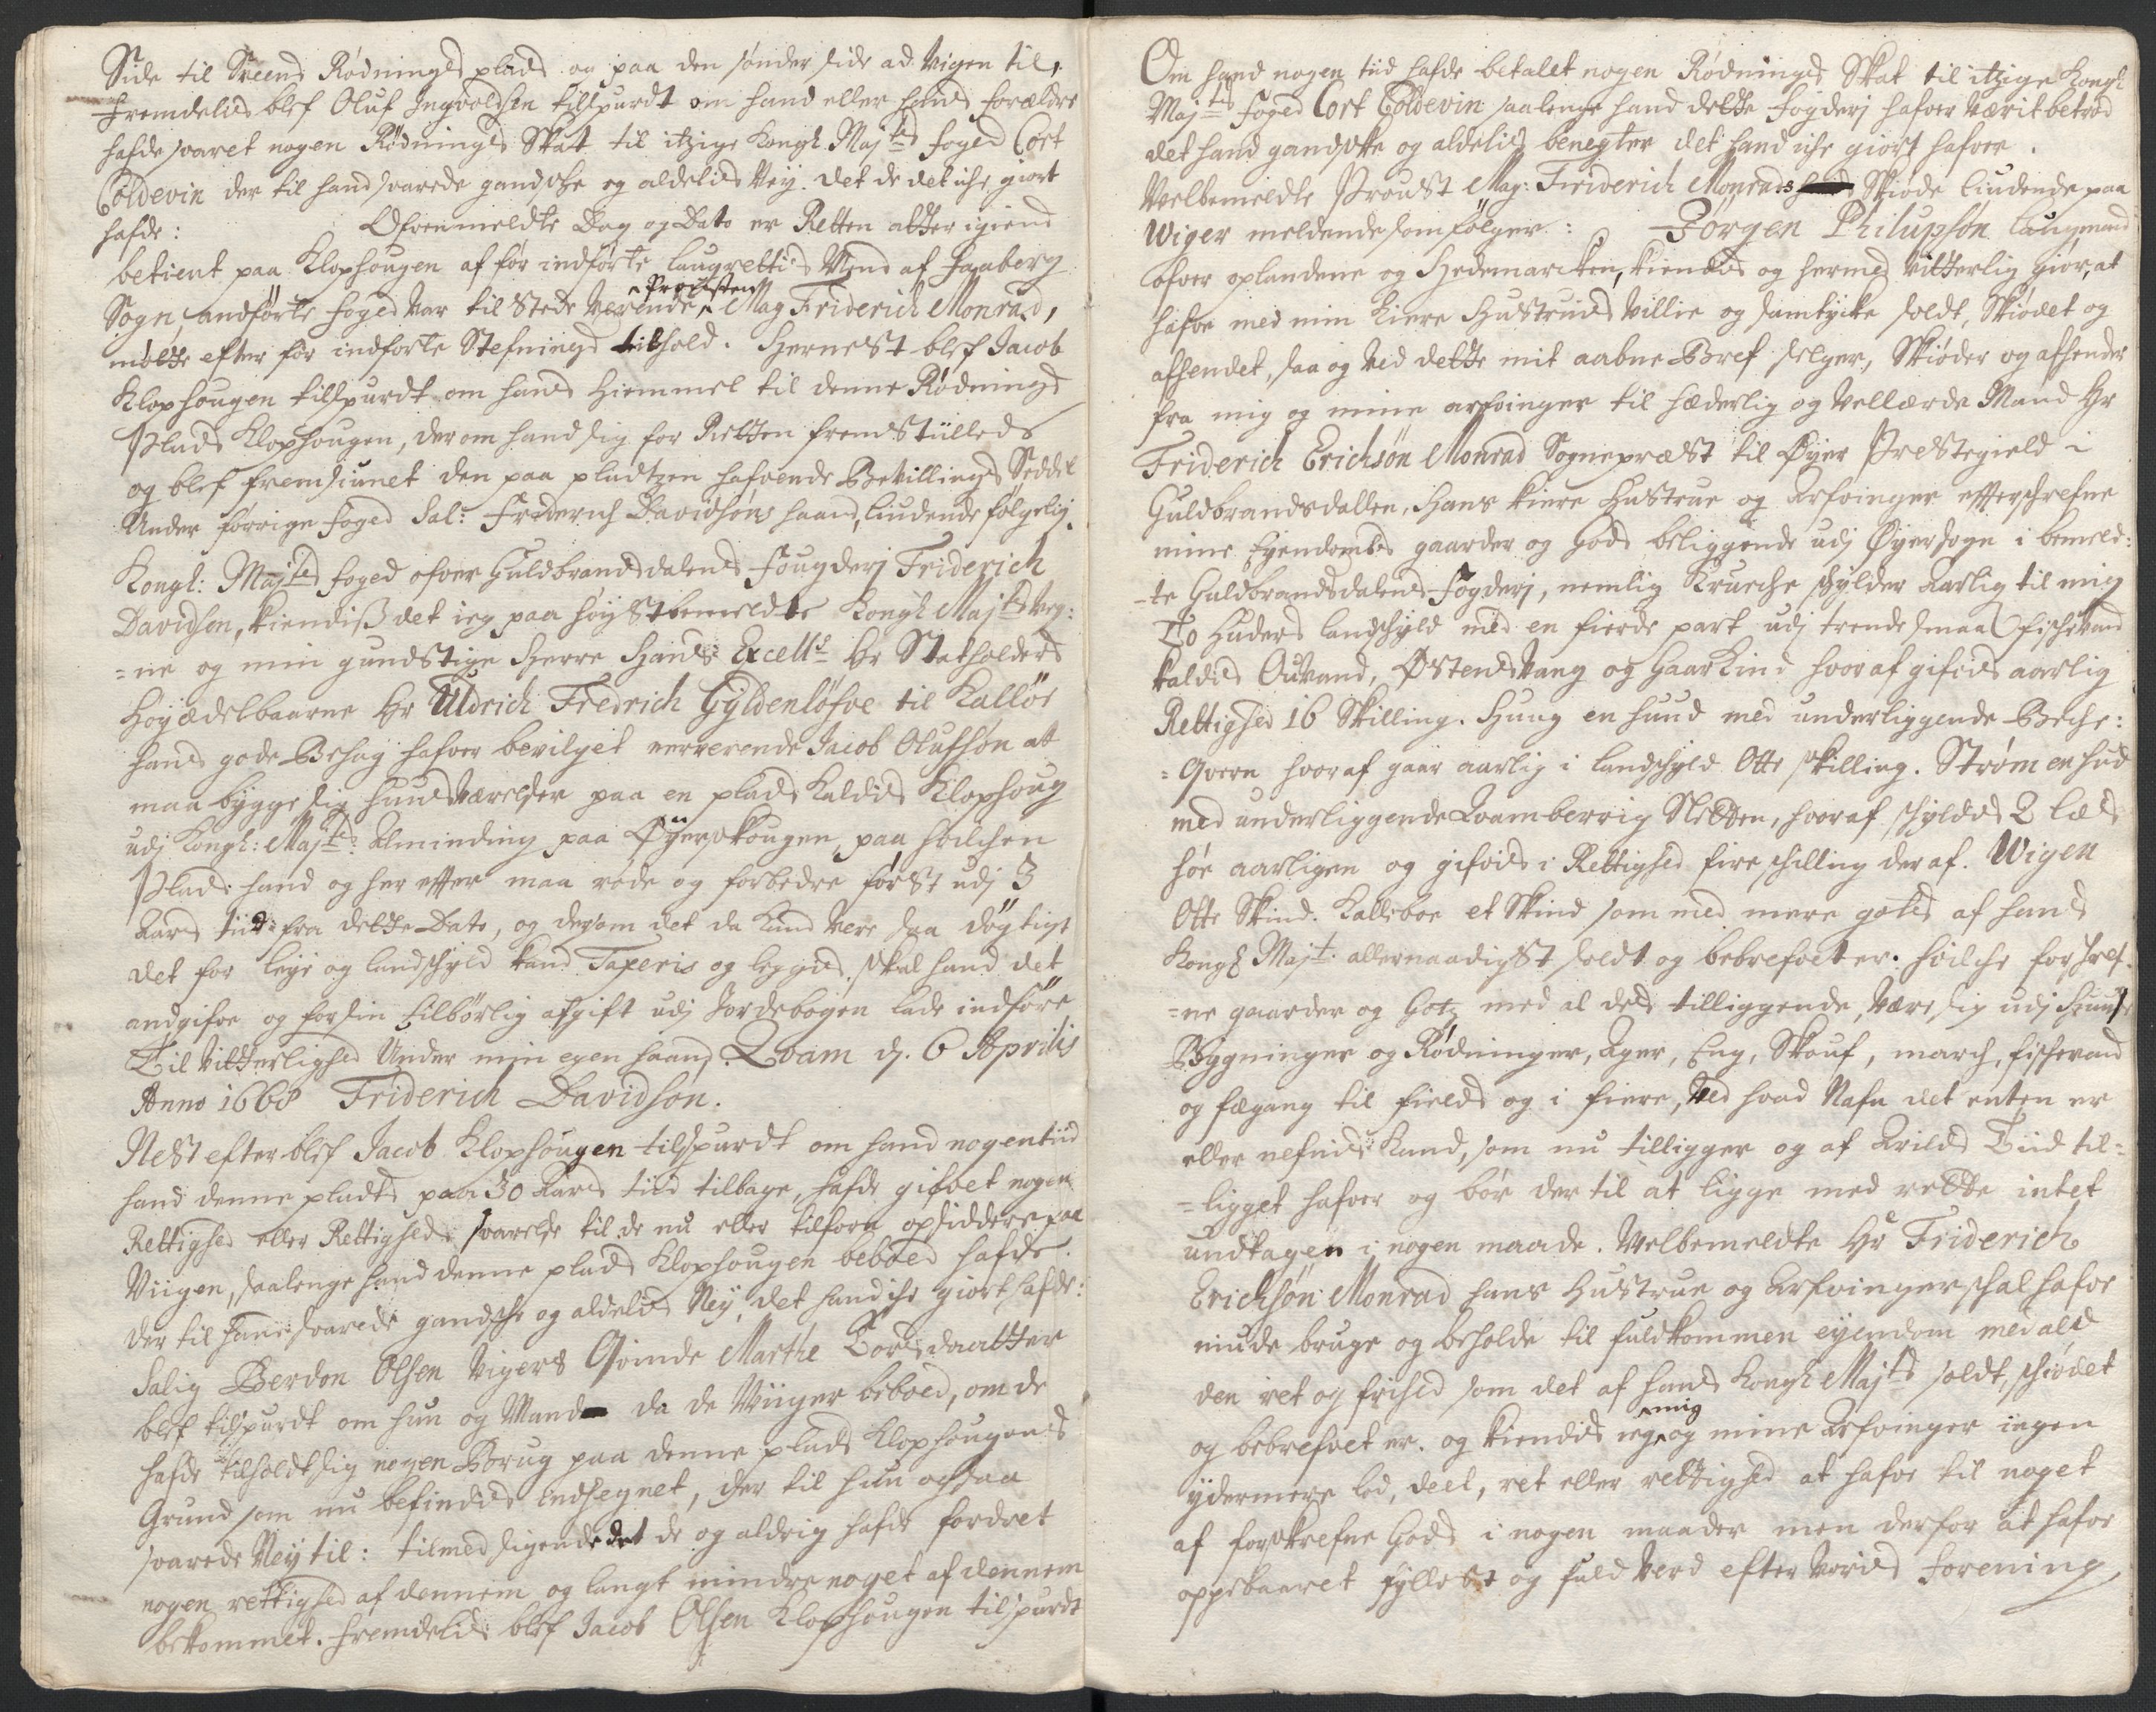 Side til Sveens Rødnings plads og paa den sønder side ad Vigen til,
Fremdelis blef Oluf Ingvoldsen tillspurdt om hand eller hans forældre
hafde svaret nogen Rødnings Skat til itzige Kongl Maj:ts foged Cort
Coldevin der til hand svarede gandske og aldelis Ney. det de det iche giort
hafde: Ofvenmeldte Dag og Dato er Retten atter igiend
betient paa Klophougen af før indførte laugrettis Mend af Faaberg
Sogn, andførte foged var tilstede verende ^Profvsten^ Mag Friderich Monrad,
møtte efter før indførte Stefnings tilhold. Hernest blef Jacob
Klophougen tillspurdt om hans Hiemmel til denne Rødnings
Plads Klophougen, der om hand sig for Retten fremstilleds
og blef fremsiunet den paa pladtzen hafvende Bevillings Seddel
Under forrige foged Sal: Frederich Davidsøns haand, liudende følgelig.
Kongl: Maj:ts foged ofver Guldbrandsdalens Fougderj Friderich
Davidsen, kiendiß det ieg paa høystbemeldte Kongl Maj:ts veg:
=ne og min gundstige Herre Hans Excell:s Hr Statholders
Høyædelbaarne Hr Uldrich Fredrich Gyldenløfve til Kalløe
hans gode Behag hafver bevilget nerverende Jacob Olufsøn at
maa bygge sig huusværelser paa en plads kaldis Klophoug
udj Kongl: Maj:ts: Alminding paa Øyerskougen, paa hvilchen
Plads hand og her efter maa røde og forbedre først udj 3
Aars tiid fra dette Dato, og dersom det da kand vere saa døgtigt
det for leye og landschyld kand Taxeris og leggis. skal hand det
andgifve og for sin tilbørlig afgift udj Jordebogen lade indføre
Til vitterlighed Under min egen haand. Qvam d. 6 Aprilis
Anno 1668 Friderich Davidsøn.
Nest efter blef Jacob Klophougen tilspurdt om hand nogentiid
hand denne plads paa 30 Aars tiid tilbage, hafde gifvet nogen
Rettighed eller Rettigheds svarelse til de nu eller tilforn opsiddere paa
Viigen, saalenge hand denne plads Klophougen beboed hafde.
der til hand svarede gandsche og aldelis Ney, det hand iche giort hafde:
Salig Berdon Olsen Vigers Qvinde Marthe Tordsdaatter
blef tilspurdt om hun og Mand da de Viiger beboed, om de
hafde tilholdt sig nogen Brug paa denne plads Klophougens
Grund som nu befindis indhegnet, der til hun ochsaa
svarede Ney til: tilmed sigende det de og aldrig hafde fordret
nogen rettighed af dennem og langt mindre noget af dennem
bekommet. Fremdelis blef Jacob Olsen Klophougen tilspurdt
Om hand nogen tiid hafde betalet nogen Rødnings Skat til itzige Kongl
Maj:ts foged Cort Coldevin saalenge hand dette fogderj hafver værit betrod
det hand gandske og aldelis benegter det hand iche giort hafver.
Velbemeldte Proust Mag: Friderich Monrads Skiøde liudende paa
Wiger meldende som følger: Jørgen Philupsøn laugmand
ofver oplandene og Hedemarcken, kiendis og hermed vitterlig giør, at
hafve med min kiere Hustruis villie og samtycke soldt, Skiødet og
afhendet, saa og ved dette mit aabne Bref selger, Skiøder og afhender
fra mig og mine arfvinger til hæderlig og vellærde Mand Hr
Friderich Erichsøn Monrad Sognepræst til Øyer Prestegield i
Guldbrandsdallen, Hans kiere Hustrue og Arfvinger efterschrefne
mine Eyendombs gaarder og Gods beliggende udj Øyersogn i bemeld:
-te Guldbrandsdalens Fogderj, nemlig Kruche schylder aarlig til mig
To Huders landschyld med en fierde part udj trende smaa fischevand
kaldis Ouvand, Østensvang og Haarkind hvoraf gifvis aarlig
Rettighed 16 Skilling. Hung en huud med underliggende Beche:
=Qvern hvoraf gaar aarlig i landschyld Otte skilling. Strøm en hud
med underliggende Qvamberrig Sletten, hvoraf schyldis 2 læs
høe aarligen og gifvis i Rettighed fire schilling deraf. Wigen
Otte Skind. Kalleboe et Skind som med mere gotz af hans
Kongl Maj:t allernaadigst soldt og bebrefvet er. hvilche forschref-
=ne gaarder og Gotz med al dets tilliggende, være sig udj Huuse
Bygninger og Rødninger, Ager, Eng, Skouf, march, fischevand
og fægang til fields og i fiære, ved hvad Nafn det enten er
eller nefnis kand, som nu tilligger og af Arilds Tiid til=
=ligget hafver og bør der til at ligge med rette intet
undtagen i nogen maade. Velbemeldte Hr Friderich
Erichsøn Monrad hans Hustrue og Arfvinger schal hafve
niude bruge og beholde til fuldkommen eyendom med ald
den ret og frihed som det af hans Kongl Maj:ts soldt, schiødet
og bebrefvet er. og kiendis ieg ^mig^ og mine Arfvinger ingen
ydermere lod, deel, ret eller rettighed at hafve til noget
af forskrefne Gods i nogen maader men derfor at hafve
oppebaaret fylleste og fuld Verd efter voris forening